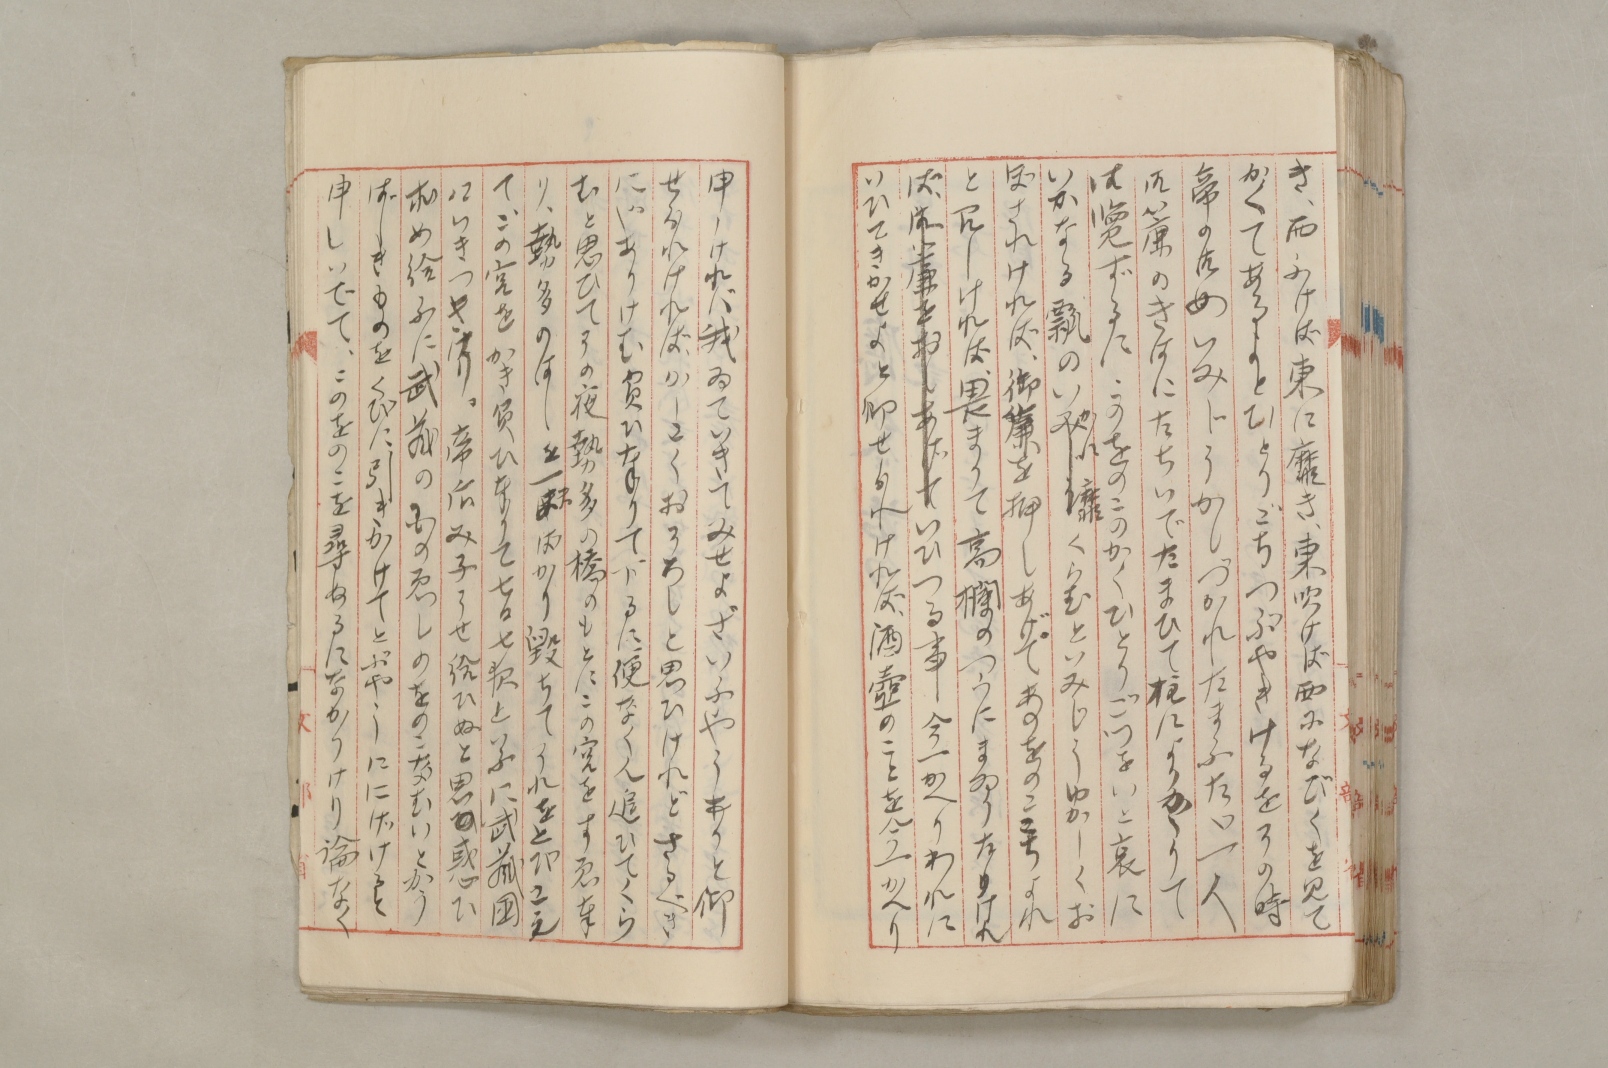 き、西ふけば東に靡き、東吹けば西になびくを見て
かくてあるよとひとりごちつぶやきけるをその時
帝の御めいみじうかしづかれたまふたゞ一人
御簾のきはにたちいでたまひて柱によりかゝりて
御覧ずるにこのをのこのかくひとりごつをいと哀に
いかなる瓢のいかに靡くらむといみじうゆかしくお
ぼされければ、御簾を押しあげてあのをのこ此方よれ
と召しければ、畏まりて高欄のつらにまゐりたりけれ
ば、いひつる事今一かへりわれに
いひてきかせよと仰せられければ、酒壺のことを今一かへり
申しければ我ゐていきてみせよさいふやうありと仰
せられければ、かしこくおそろしと思ひけれどさるべき
にやありけむ負ひ奉りて下るに便なく人追ひてくら
むと思ひてその夜勢多の橋のもとにこの宮をすゑ奉
り、勢多のはしを一間ばかり毀ちてそれをとびこえ
てこの宮をかき負ひ奉りて七日七夜といふに武蔵国
にいきつきけり。帝后み子うせ給ひぬと思惑ひ
求め給ふに武蔵のものゑじのをのこなむいとかう
ばしきものをくびに引きかけてとぶやうににげけると
申しいでて、このをのこを尋ぬるになかりけり論なく
文部省